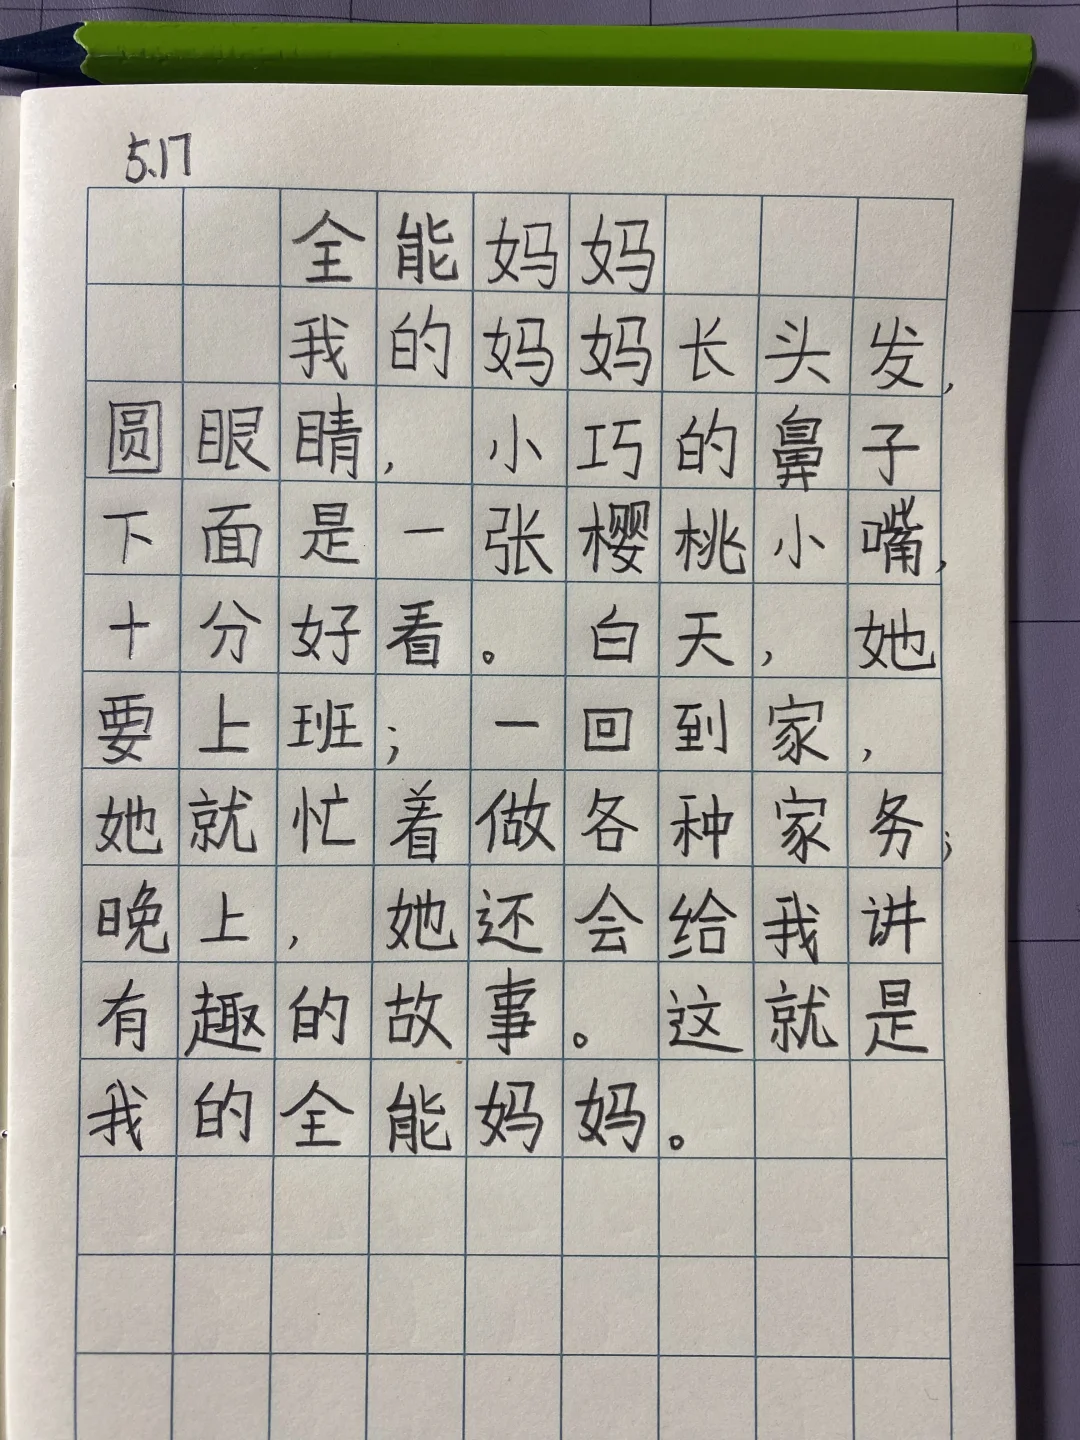 5.17
全能妈妈
我的妈妈长头发,
圆眼睛,小巧的鼻子
下面是一张樱桃小嘴,
十分好看。白天,她
要上班;一回到家,
她就忙着做各种家务;
晚上,她还会给我讲
有趣的故事。这就是
我的全能妈妈。